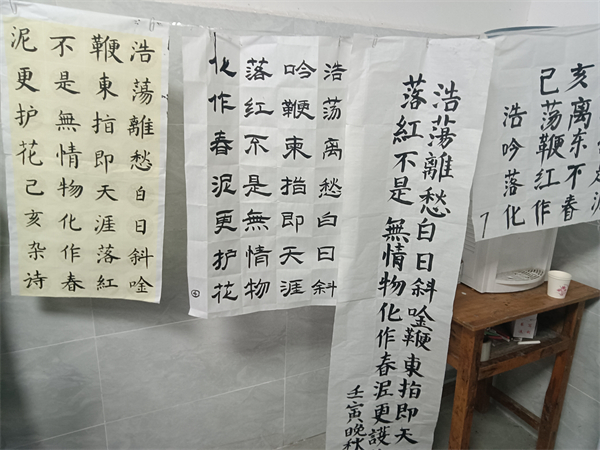 浩蕩離愁白日斜唫
鞭東指即天涯落紅
不是無情物化作春
泥更护花己亥杂诗
浩荡离愁白日斜
吟鞭東指即天涯
落红不是無情物
化作春泥更护花
④
浩蕩離愁白日斜唫鞭東指即天
落紅不是無情物化作春泥更護
壬寅晚秋
亥离东不春
己荡鞭红作
浩吟落化
7